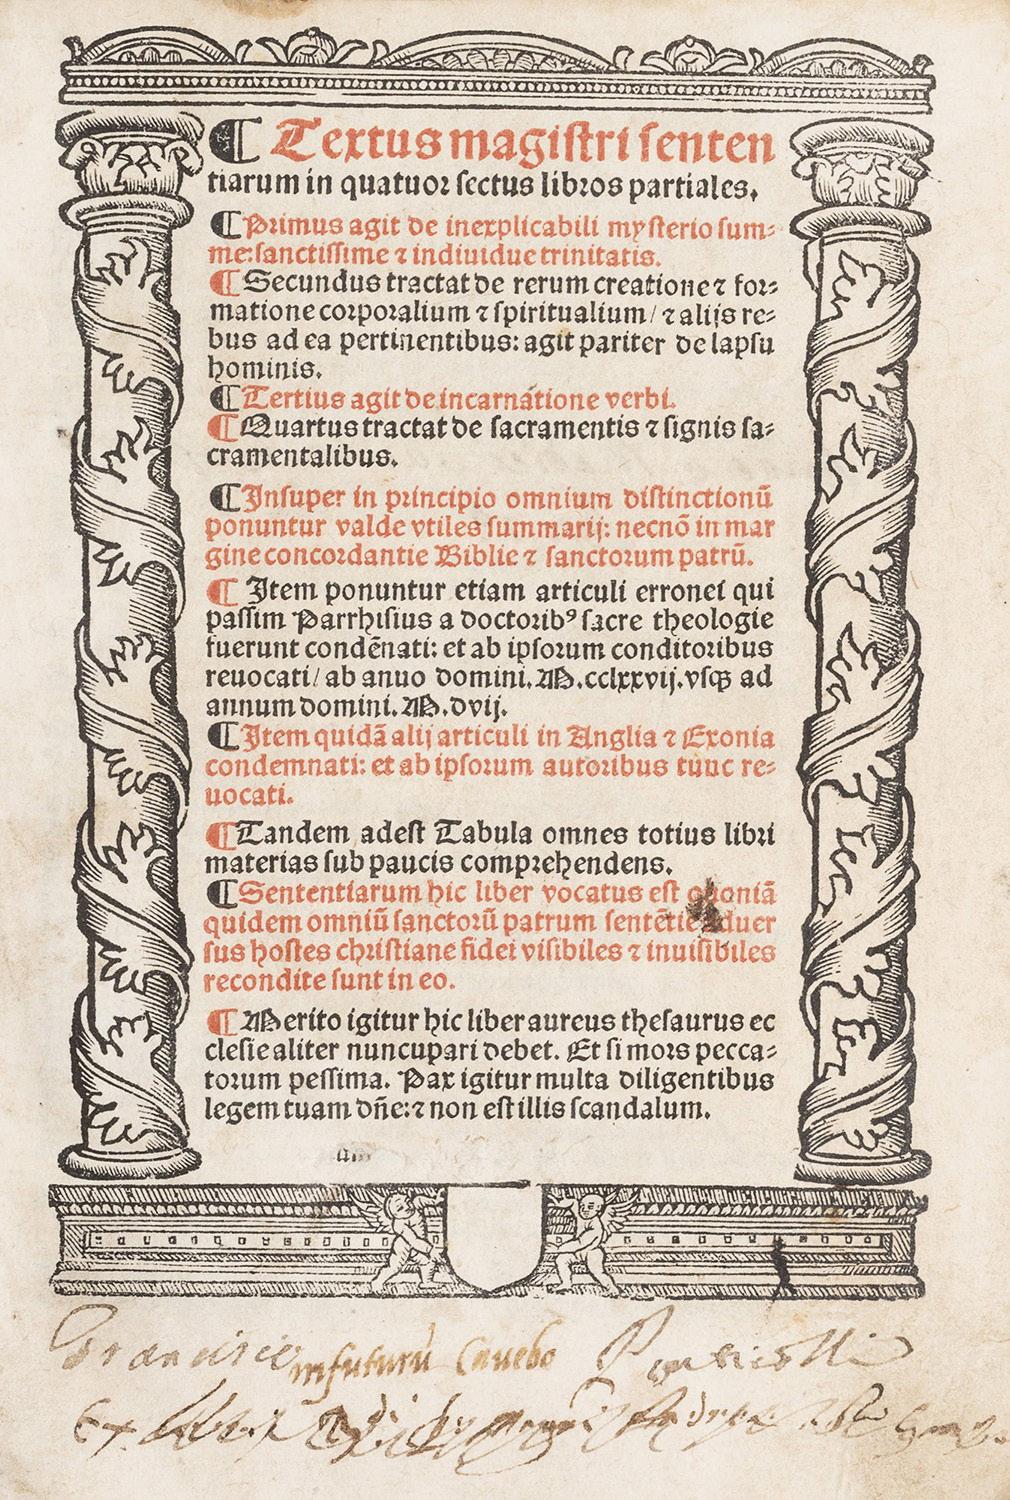 ¶ Textus magistri senten
tiarum in quatuor sectus libros partiales.
¶Primus agit de inexplicabili mysterio sum⸗
me:sanctissime ⁊ indiuidue trinitatis.
¶Secundus tractat de rerum creatione ⁊ for⸗
matione corporalium ⁊ spiritualium/ ⁊ alijs re⸗
bus ad ea pertinentibus: agit pariter de lapsu
hominis.
¶Tertius agit de incarnatione verbi.
¶Quartus tractat de sacramentis ⁊ signis sa⸗
cramentalibus.
¶Insuper in principio omnium distinctionū
ponuntur valde vtiles summarij: necnō in mar
gine concordantie Biblie ⁊ sanctorum patrū.
¶ Item ponuntur etiam articuli erronei qui
passim Parrhisius a doctoribꝰ sacre theologie
fuerunt condēnati: et ab ipsorum conditoribus
reuocati/ ab anuo domini. M.cclxxvij. vsqꝫ ad
annum domini. M.dvij.
¶Item quidā alij articuli in Anglia ⁊ Exonia
condemnati: et ab ipsorum autoribus tuuc re⸗
uocati.
¶Tandem adest Tabula omnes totius libri
materias sub paucis comprehendens.
¶Sententiarum hic liber vocatus est quoniā
quidem omniū sanctorū patrum sentētie aduer
sus hostes christiane fidei visibiles ⁊ inuisibiles
recondite sunt in eo.
¶Merito igitur hic liber aureus thesaurus ec
clesie aliter nuncupari debet. Et si mors pecca⸗
torum pessima. Pax igitur multa diligentibus
legem tuam dn̄e: ⁊ non est illis scandalum.
in futurū Cauebo
Ex